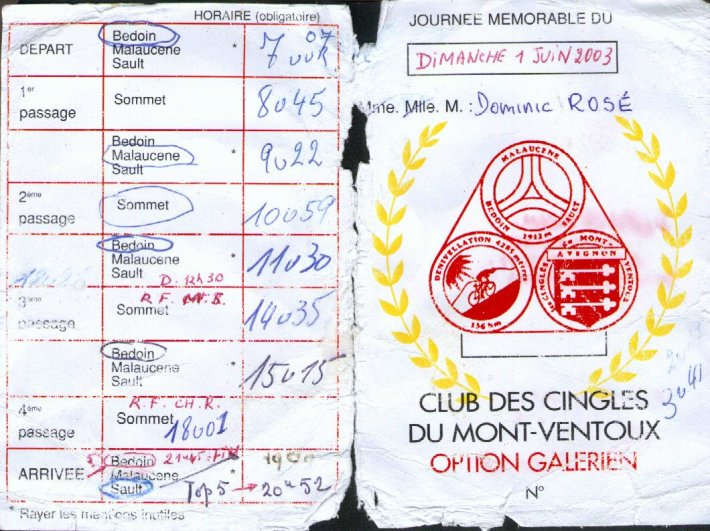 HORAIRE (obligatoire)
DEPART
Bedoin
Malaucene *
Sault
7 uur 07
1er passage
Sommet
8u45
Bedoin
Malaucene *
Sault
9u22
2ème passage
Sommet
10u59
Bedoin
Malaucene *
Sault
11u30
D. 12h30
3ème passage
R.F.
Sommet
14u35
Bedoin
Malaucene *
Sault
15u15
4ème passage
R.F. CH.R.
Sommet
18u01
ARRIVEE
Bedoin 21u45
Malaucene *
Sault
Top 5 → 20u52
* Rayer les mentions inutiles
JOURNEE MEMORABLE DU
DIMANCHE 1 JUIN 2003
Mme. Mlle. M. : Dominic ROSÉ
MALAUCENE
BEDOIN 1912m SAULT
DENIVELLATION 4285 mètres
136 km
du MONT-VENTOUX
AVIGNON
les CINGLÉS
3u41
CLUB DES CINGLES
DU MONT-VENTOUX
OPTION GALERIEN
N°